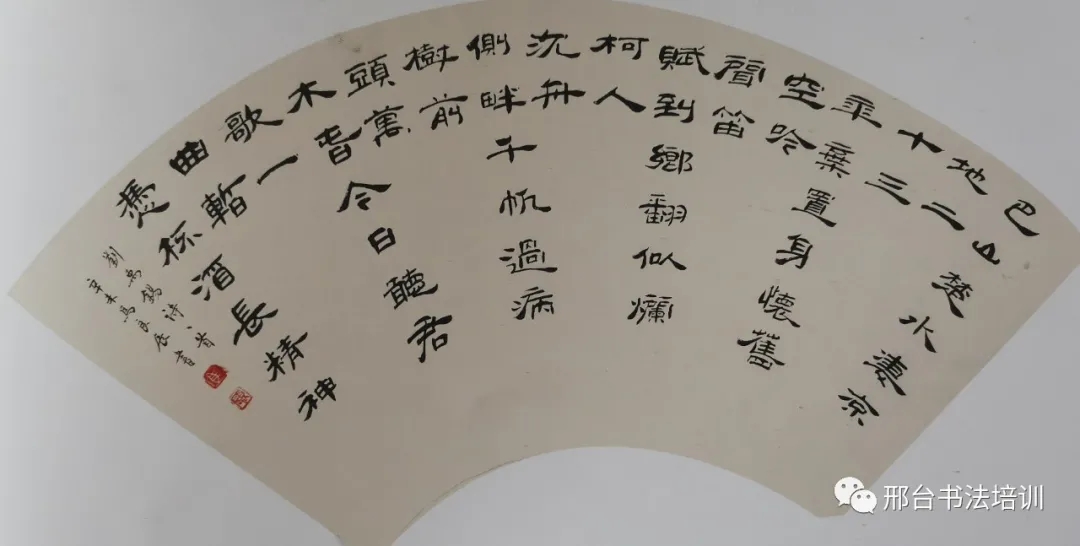 巴山楚水凄凉
地二
十三
年棄置身懷舊
空吟
聞笛
賦到鄉翻似爛
柯人
沉舟
側畔千帆過病
樹前
頭萬
木春今日聽君
歌一
曲暫
憑杯酒長精神
劉禹錫詩一首
辛未馬書
邢台书法培训